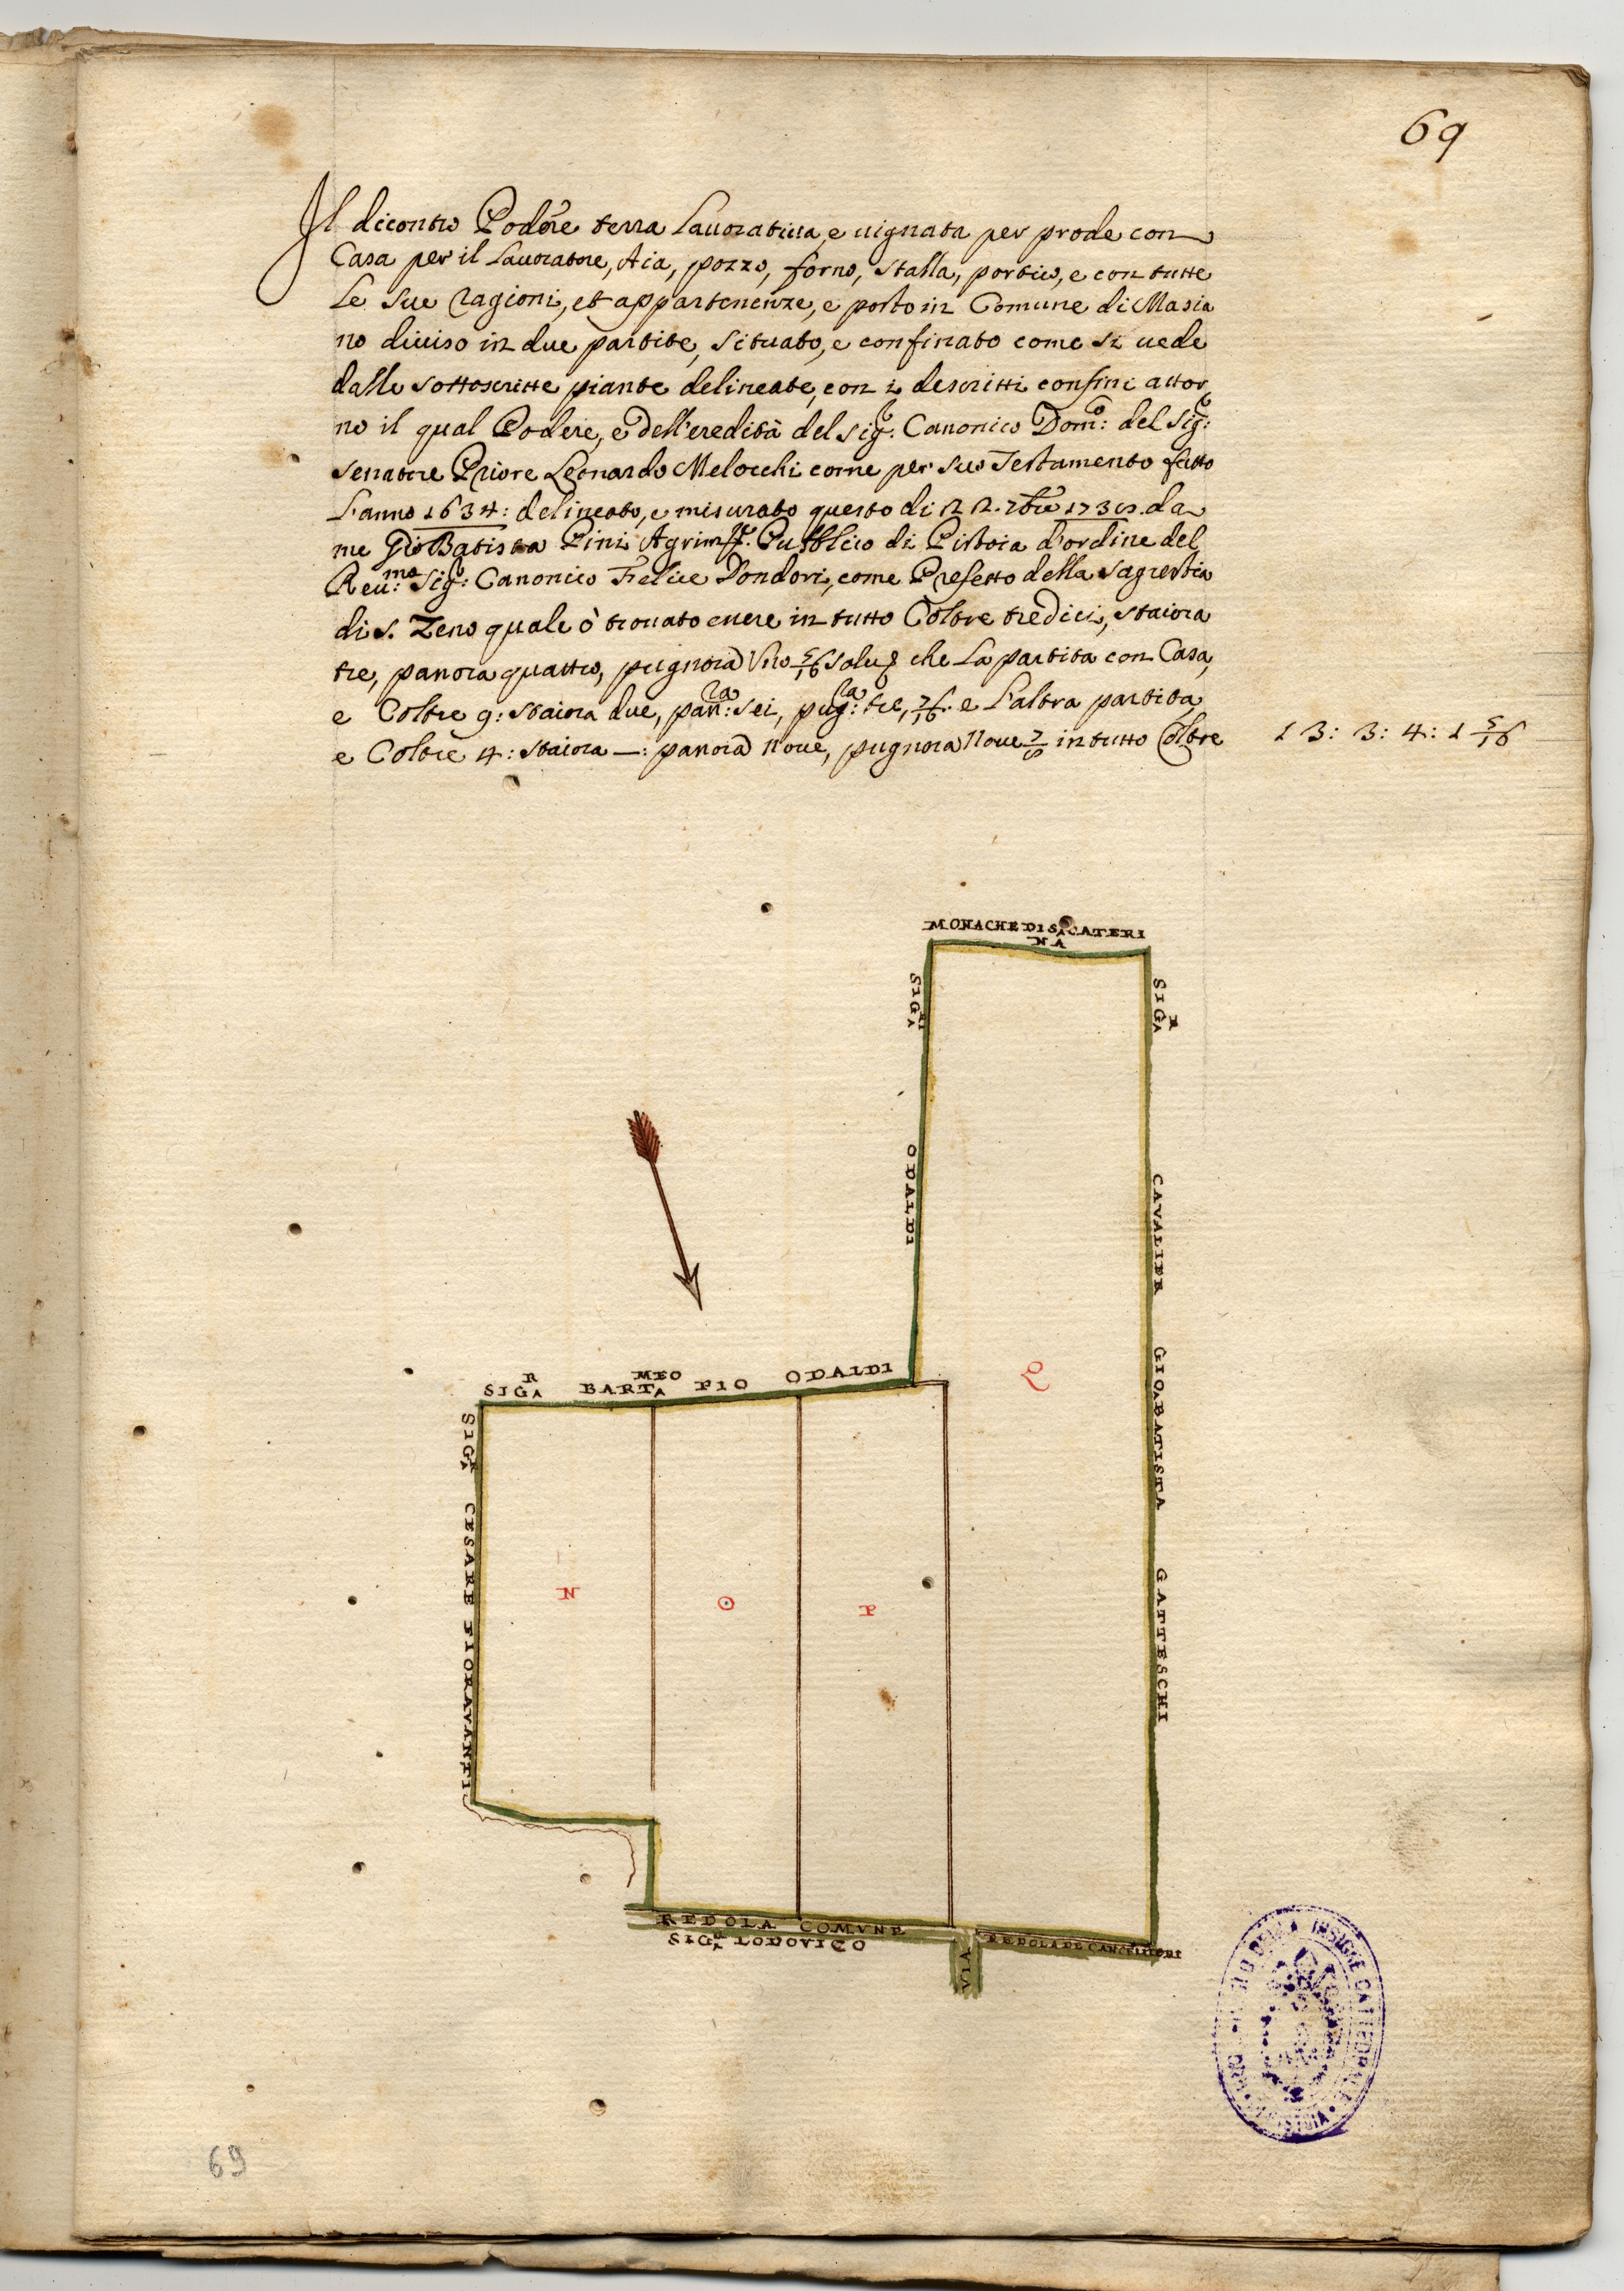 69
Il dicontro Podere terra Lauoratiua, e uignata per prode con
Casa per il Lauoratore, Aia, pozzo, forno, stalla, portico, e con tutte
le sue ragioni, et appartenenze, e posto in Comune di Masia
no diuiso in due partite, situato, e confinato come si uede
dalle sottoscritte piante delineate, con i descritti confini attor
no il qual Podere, e dell'eredità del sig.r: Canonico Dom.co: del sig.r:
senatore Priore Leonardo Melocchi come per suo Testamento fatto
L'anno 1634: delineato, e misurato questo di 22. 7bre 1730. da
me Gio Batista Pini Agrim.re Pubblico di Pistoia d'ordine del
Reu.mo: sig.r: Canonico Felice Dondori, come Prefetto della sagrestia
di s. Zeno quale ò trouato essere in tutto Coltre tredici, staiora
tre, panora quattro, pugnora Vno 5/16 che La partita con Casa,
e Coltre 9: staiora due, pan:ra sei, pug:ra tre, 7/16. e L'altra partita
e Coltre 4: staiora —: panora noue, pugnora Noue 7/8 in tutto Coltre 13: 3: 4: 1 5/16
MONACHE DI SA CATERI
NA
SIGRA
ODALDI
SIGRA
CAVALIER
GIOABATISTA
GATTESCHI
SIGRA BARTAMEO PIO ODALDI
SIGRA
CESARE FIORAVANTI
N
O
P
Q
REDOLA COMVNE
SIGRA LODOVICO
VIA
REDOLA DE CANCELLIERI
INSIGNE CATTEDRALE
69